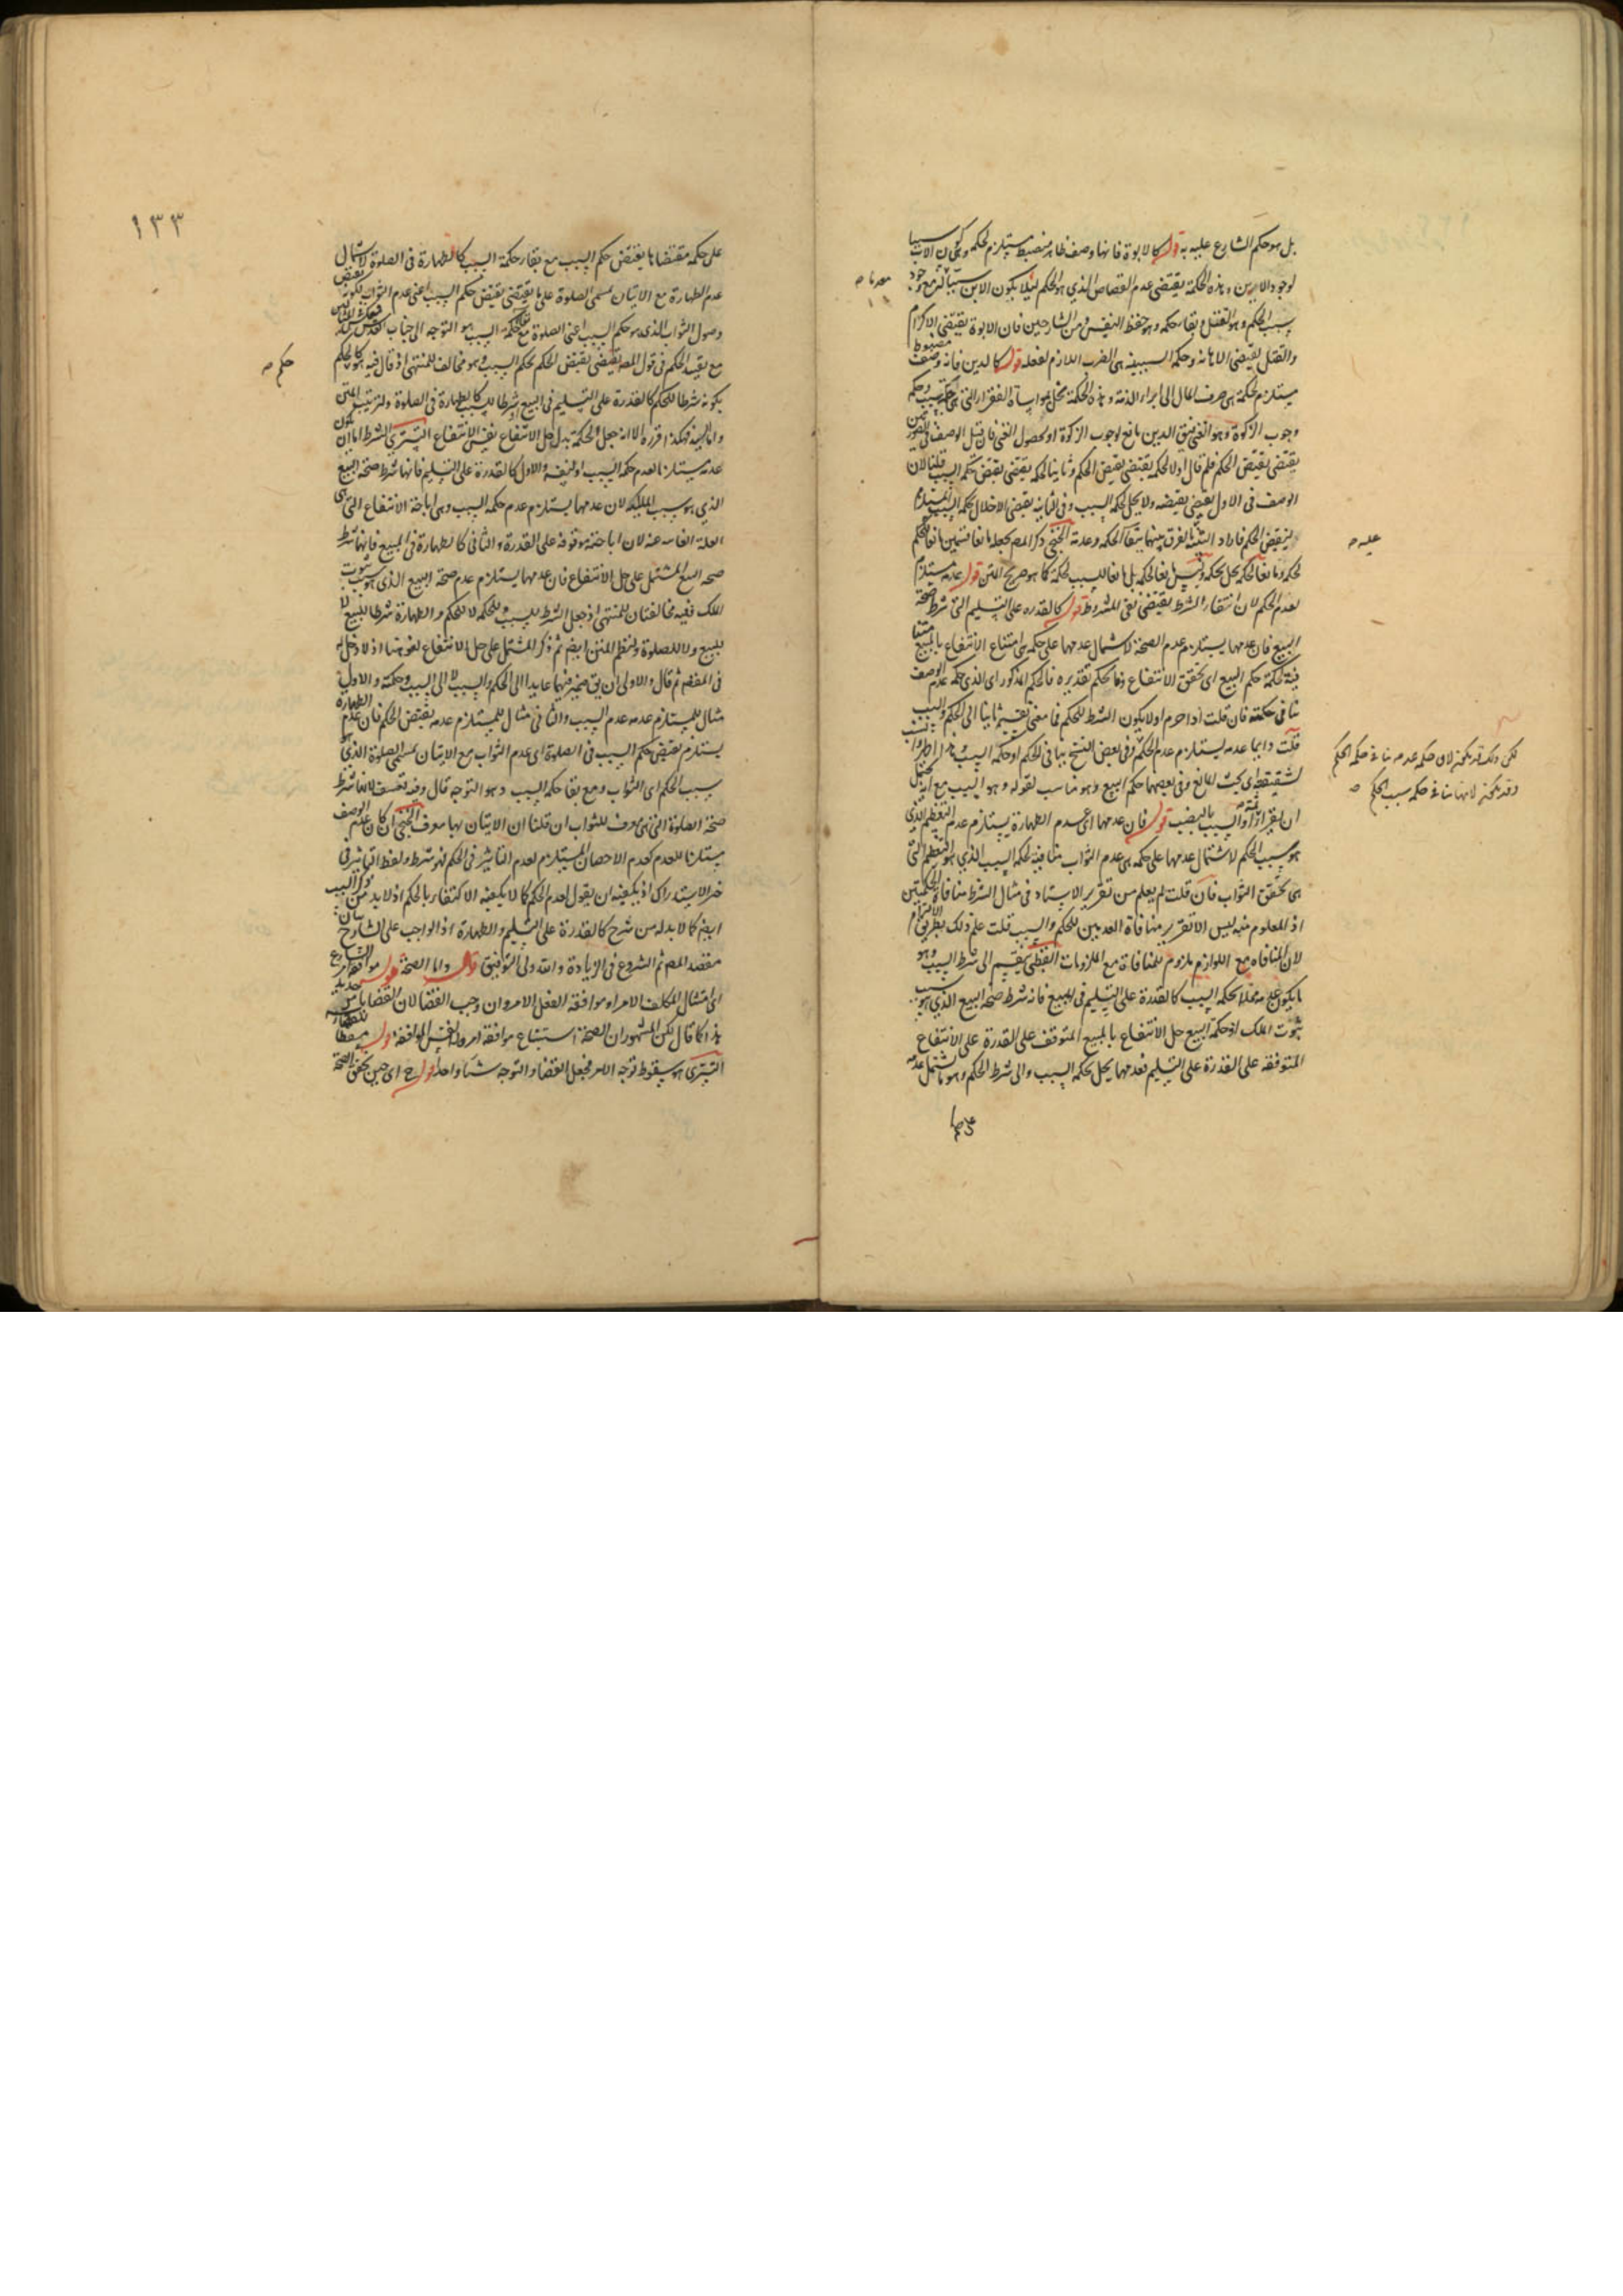 بل هو حكم الشارع عليه به قوله كالابوة فانها وصف ظاهر منضبط مستلزم لحكمة وهي كون الاب سببا
لوجود الابن وهذه الحكمة يقتضى عدم القصاص الذي هو الحكم لئلا يكون الابن سببا لعدمه مع وجود
سبب الحكم وهو القتل وبقاء حكمه وهو حفظ النفس ومن الشارحين فان الابوة يقتضى الاكرام
والقتل يقتضى الاهانة وحكمة السببية هى الضرب اللازم لفعله قوله كالدين فانه وصف مضبوط
مستلزم لحكمة هى صرف المال الى ابراء الذمة وهذه الحكمة تخل بمواساة الفقراء التى هى حكمة سبب حكم
وجوب الزكوة وهو الغنى فى الدين مانع لوجوب الزكوة او لحصول الغنى فان قيل الوصف
يقتضى نقيض الحكم فلم قال اولا لحكمة يقتضى نقيض الحكم وثانيا لحكمة يقتضى نقيض حكم السبب قلنا لان
الوصف فى الاول يقتضى نقيضه ولا يخل بحكمة السبب وفى الثانية يقتضى الاخلال بحكمة السبب المستلزم
لنقيض الحكم فاراد التنبيه الفرق بينهما ببقاء الحكمة وعدمه الخنجى ذكر المصر بجعله مانعا قسمين مانعا للحكم
لحكمة ومانعا لحكمة يخل بحكمه وليس مانعا لحكمة بل مانعا للسبب لحكمة كما هو صريح المتن قوله عدمه مستلزم
لعدم الحكم لان انتفاء الشرط يقتضى نفى المشروط قوله كالقدرة على التسليم التى شرط صحة
البيع فان عدمها يستلزم عدم الصحة لاشتمال عدمها على حكمة هى امتناع الانتفاع بالمبيع
لحكمة حكم البيع اى تحقق الانتفاع وفا بحكم تقديره فالحكم المذكور اى الذى حكمة عدم الوصف
تنافى حكمته فان قلت اولا يكون الشرط للحكم فما معنى تقسيمه ثانيا الى الحكم والسبب
قلت دايما عدمه يستلزم عدم الحكم وفى بعض النسخ بينا فى للحكم او حكمة السبب
لشقيقه اى بحث المانع وفى بعضها حكم البيع وهو مناسب لقوله وهو السبب مع انه يحتمل
ان يقرأ او السبب بالنصب قوله فان عدمها اى عدم الطهارة يستلزم عدم التعظيم الذى
هو سبب الحكم لاشتمال عدمها على حكمة هى عدم الثواب منافية لحكمة السبب الذي هو التعظيم التى
هى تحقق الثواب فان قلت لم يعلم من تقرير الاستاد فى مثال الشرط منافاة الحكمتين
اذ المعلوم منه ليس الا تقرير منافاة العدمين للحكم والسبب قلت علم ذلك بطريق الالتزام
لان المنافاه مع اللوازم ملزوم للمنافاة مع الملزومات القطبى يقسم الى شرط السبب وهو
ما يكون عدمه مخلا بحكمة السبب كالقدرة على التسليم فى المبيع فانه شرط صحة البيع الذي هو سبب
ثبوت الملك او حكمة البيع حل الانتفاع بالمبيع المتوقف على القدرة على الانتفاع
المتوقفة على القدرة على التسليم فعدمها يخل بحكمة السبب والى شرط الحكم وهو ما اشتمل عدمه
على حكمة
عليه صح
لكن ذلك قد يكون لان حكمة عدمه ينافى حكمة الحكم
وقد يكون لانها ينافى حكمة سبب الحكم صح
١٣٣
على حكمة مقتضاها يقتضى نقيض حكم السبب مع بقاء حكمة السبب كالطهارة فى الصلوة لاشتمال
عدم الطهارة مع الاتيان بمسمى الصلوة على ما يقتضى نقيض حكم السبب اعنى عدم الثواب لكونه نقيض
وصول الثواب الذى هو حكم السبب اعنى الصلوة مع بقاء حكمة السبب هو التوجه الى جناب القدس
مع نقيض الحكم فى قول المص يقتضى نقيض الحكم لحكم السبب وهو مخالف للمنتهى اذ قال فيه هو كالحكم
بكونه شرطا للحكم كالقدرة على التسليم فى البيع او شرطا للسبب كالطهارة فى الصلوة ولترتيب المتن
وهكذا قرره الا انه جعل الحكمة بدل حل الانتفاع نفس الانتفاع التسترى الشرط اما ان يكون
عدمه مستلزما لعدم حكمة السبب او لنفسه والاول كالقدرة على التسليم فانها شرط صحة البيع
الذي هو سبب الملك لان عدمها يستلزم عدم حكمة السبب وهى اباحة الانتفاع التى هى
العلة الغائية عنه لان اباحته موقوفة على القدرة والثانى كالطهارة فى المبيع فانها شرط
صحة البيع المشتمل على حل الانتفاع فان عدمها يستلزم عدم صحة البيع الذى هو سبب ثبوت
الملك ففيه مخالفتان للمنتهى اذ جعل الشرط للسبب وللحكمة لا للحكم والطهارة شرطا للبيع لا
للبيع ولا للصلوة ولنظم المتن ايضا ثم ذكر المشتمل على حل الانتفاع لغو هنا اذ لا دخل له
فى المقصد ثم قال والاولى ان يق ضمير فيهما عايدا الى الحكم والسبب لا الى السبب وحكمته والاول
مثال للمستلزم عدمه عدم السبب والثانى مثال للمستلزم عدمه نقيض الحكم فان عدم الطهارة
يستلزم نقيض حكم السبب فى الصلوة اى عدم الثواب مع الاتيان بمسمى الصلوة الذى هو
سبب الحكم اى الثواب ومع بقاء حكمة السبب وهو التوجه قال وفيه تعسف لانها شرط
صحة الصلوة التى هى معرف للثواب ان قلنا ان الاتيان بها معرف الخنجى ان كان عدم الوصف
مستلزما للعدم كعدم الاحصان المستلزم لعدم التاثير فى الحكم فهو شرط ولفظ التاثير فى
خير الاستدراك اذ يكفيه ان يقول لعدم الحكم كما لا يكفيه الاكتفاء بالحكم اذ لا بد من ذكر السبب
ايضا كما لا بد له من شرح كالقدرة على التسليم والطهارة اذ الواجب على الشارح بيان
مقصد المص ثم الشروع فى الزيادة والله ولى التوفيق قال واما الصحة قوله موافقة امر الشارع
اى امتثال المكلف الامر او موافقة الفعل الامر وان وجب القضا لان القضا بامر جديد
هذا كما قال لكن المشهور ان الصحة استتباع موافقة امره لا نفس الموافقة قوله مسقطا للقضاء
التسترى هو سقوط توجه الامر فجعل القضا والتوجه شيئا واحدا قوله ح اى حين تحقق الصحة
حكم صح